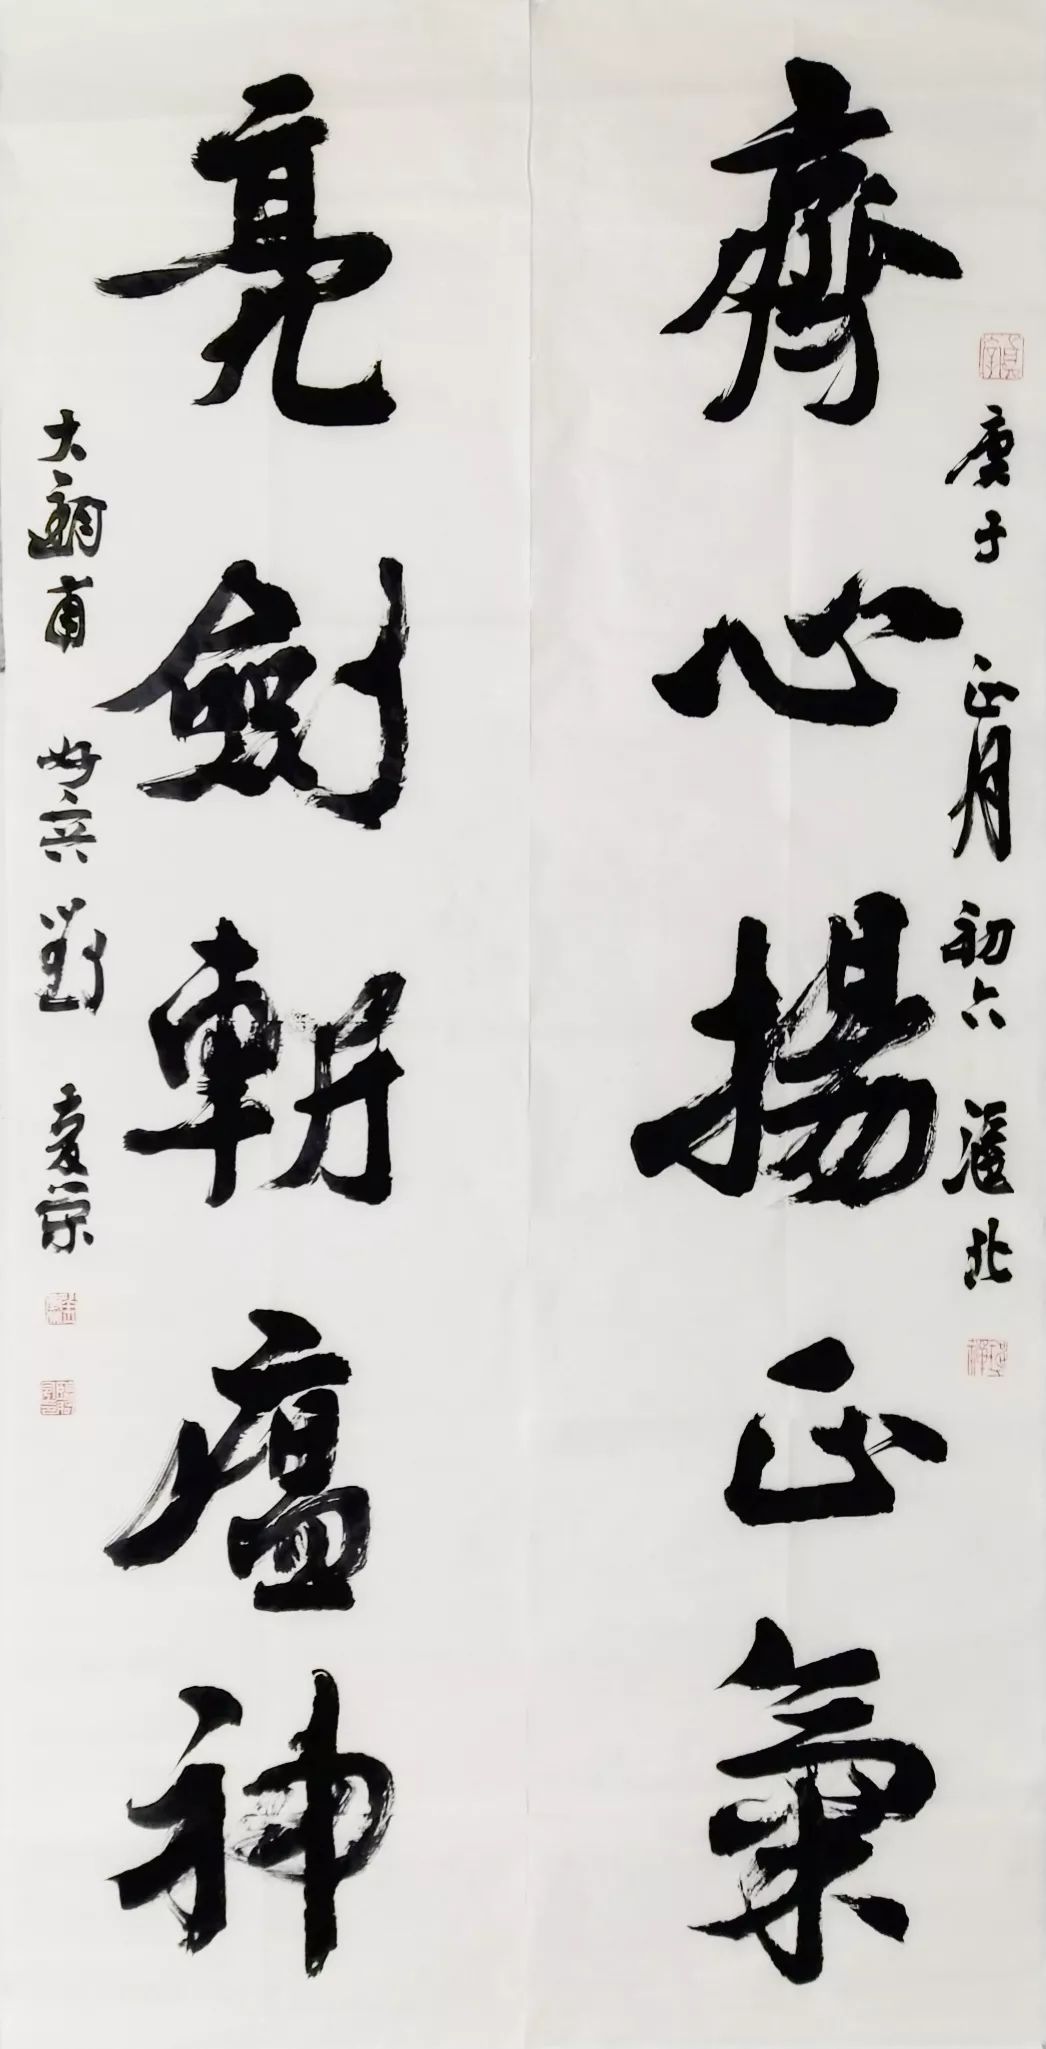 齊心揚正氣
庚子正月初六滬北
亮劍斬瘟神
大
甫
劉
愛榮